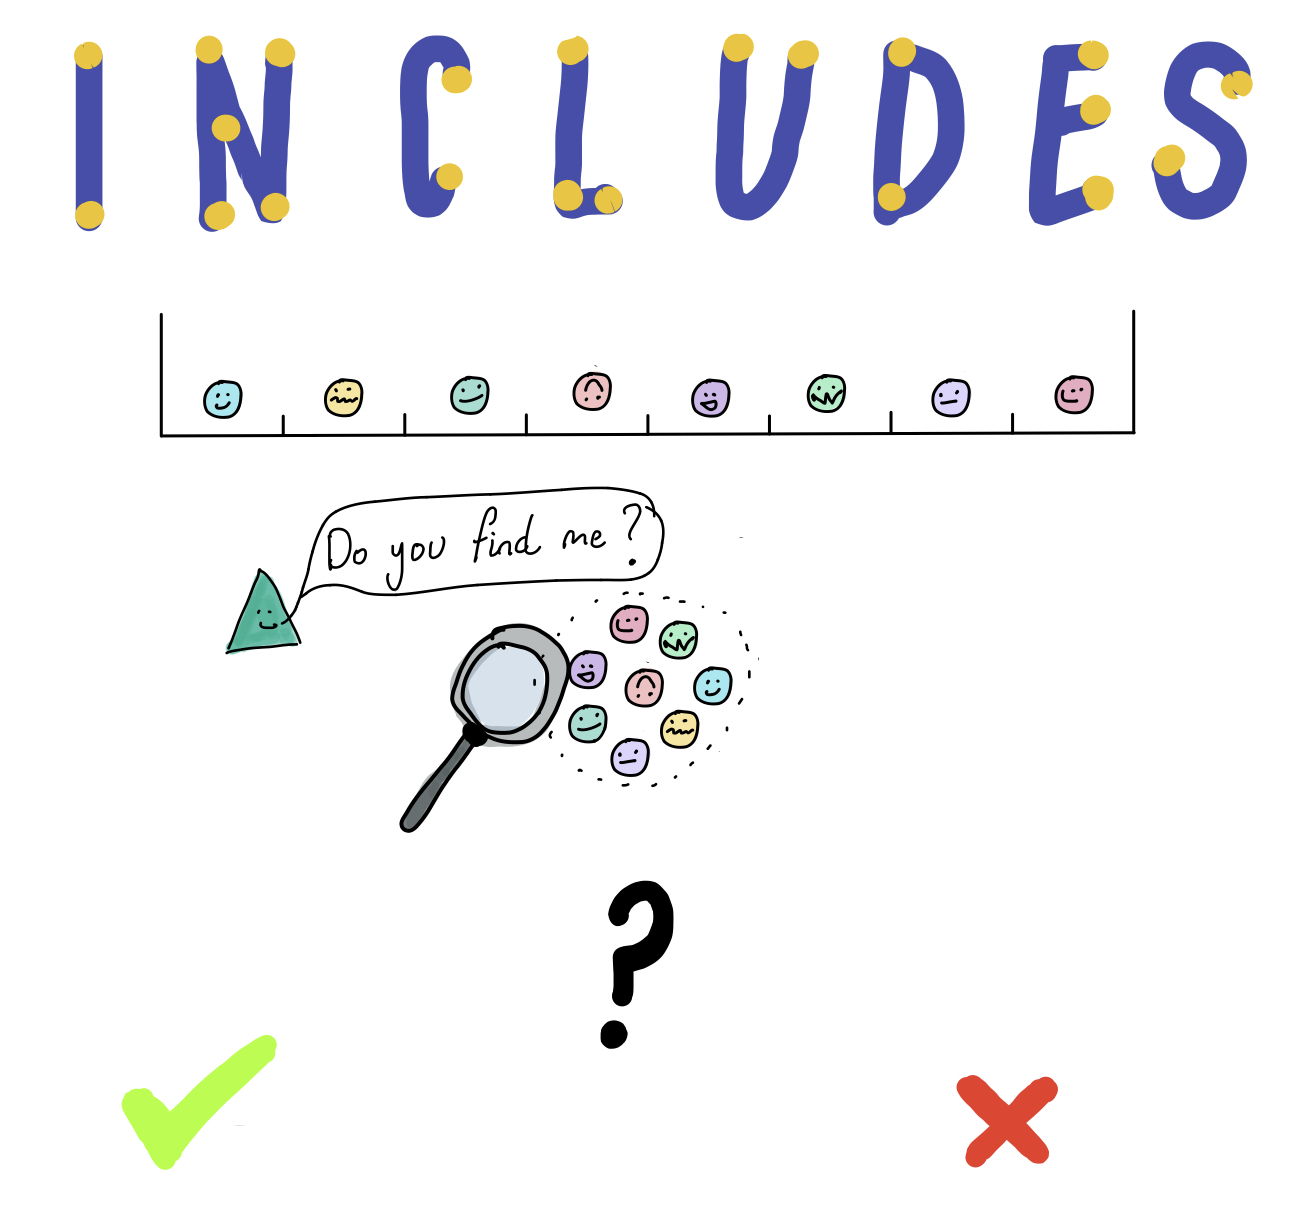 INCLUDES
Do you find me?
?